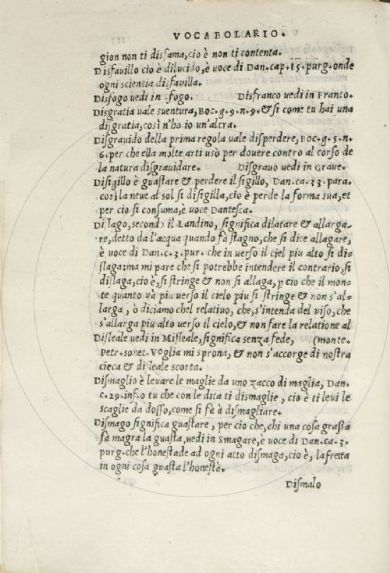 VOCABOLARIO.
gion non ti disfama, cio è non ti contenta.
Disfauillo cio è dilucido, è uoce di Dan. cap. 15. purg. onde
ogni scientia disfauilla.
Disfogo uedi in sfogo. Disfranco uedi in Franco.
Disgratia uale suentura, Boc. g. 9. n. 9. & si come tu hai una
disgratia, così n'ho io un'altra.
Disgrauido della prima regola uale disperdere, Boc. g. 5. n.
6. per che ella molte arti usò per douere contro al corso de
la natura disgrauidare. Disgrauo uedi in Graue.
Disigillo è guastare & perdere il sigillo, Dan. ca. 33. para.
così la neue al sol si disigilla, cio è perde la forma sua, et
per cio si consuma, è uoce Dantesca.
Dislago, secondo il Landino, significa dilatare & allarga-
re, detto da l'acqua quando fà stagno, che si dice allagare,
è uoce di Dan. c. 3. pur. che in uerso il ciel piu alto si dis-
laga: ma mi pare che si potrebbe intendere il contrario, si
dislaga, cio è, si stringe & non si allaga, p cio che il mon-
te quanto uà piu uerso il cielo piu si stringe & non s'al-
larga, ò diciamo che'l relatiuo, che, s'intenda del uiso, che
s'allarga piu alto uerso il cielo, & non fare la relatione al
Disleale uedi in Misleale, significa senza fede, (monte.
Petr. sonet. Voglia mi sprona, & non s'accorge di nostra
cieca & disleale scorta.
Dismaglio è leuare le maglie da uno zacco di maglia, Dan.
c. 29. inf. o tu che con le dica ti dismaglie, cio è ti leui le
scaglie da dosso, come si fà à dismagliare.
Dismago significa guastare, per cio che, chi una cosa grassa
fà magra la guasta, uedi in Smagare, è uoce di Dan. ca. 3.
purg. che l'honestade ad ogni atto dismaga, cio è, la fretta
in ogni cosa guasta l'honestà.
Dismalo